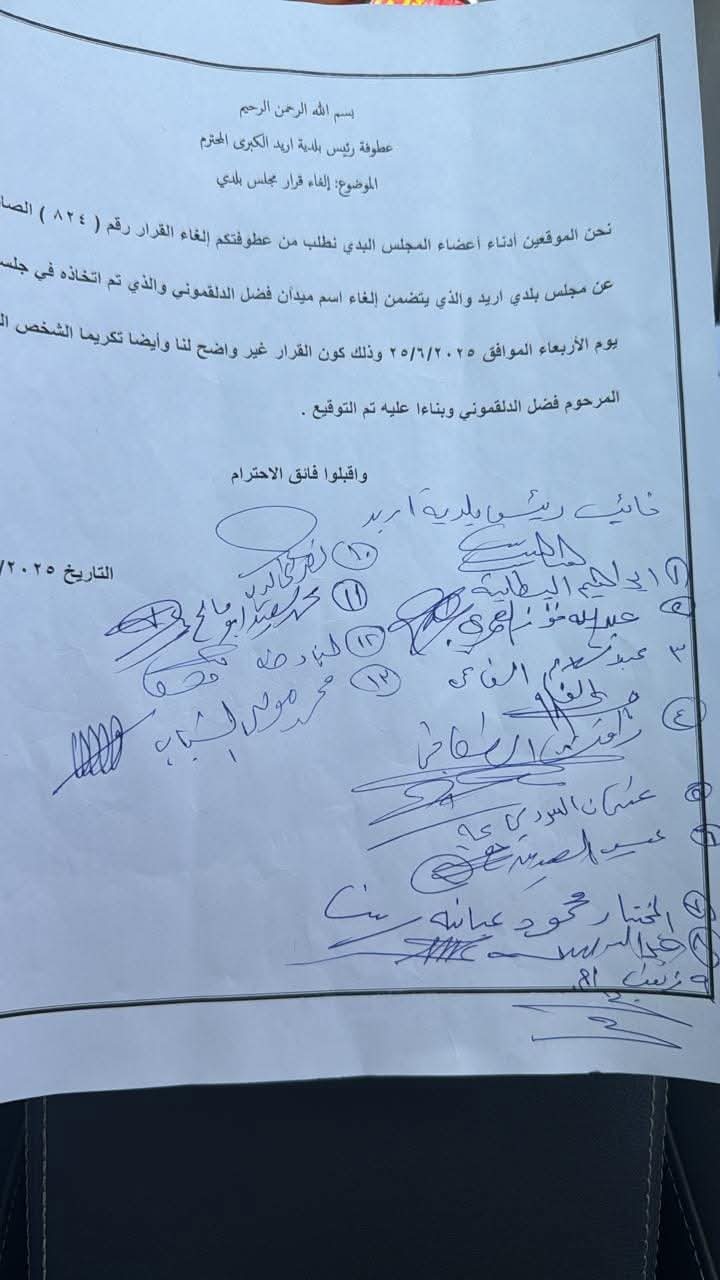 بسم الله الرحمن الرحيم
عطوفة رئيس بلدية اربد الكبرى المحترم
الموضوع: إلغاء قرار مجلس بلدي
نحن الموقعين أدناء أعضاء المجلس البدي نطلب من عطوفتكم إلغاء القرار رقم ( ٨٢٤ ) الصا
عن مجلس بلدي اربد والذي يتضمن إلغاء اسم ميدان فضل الدلقموني والذي تم اتخاذه في جلسة
يوم الأربعاء الموافق ٢٥/٦/٢٠٢٥ وذلك كون القرار غير واضح لنا وأيضا تكريما الشخص
المرحوم فضل الدلقموني وبناءا عليه تم التوقيع .
واقبلوا فائق الاحترام
التاريخ /٢٠٢٥
نائب رئيس بلدية اربد
١ ابراهيم البطاينة
عبدالله فؤاز
٣ عبدالسلام
٤
٥ عثمان
٦ عيسى
٧ المختار محمود عبابنه
٨
٩ رفعت
١٠
١١ محمد سعيد ابو صالح
١٢
١٣ محمد موسى الشياب